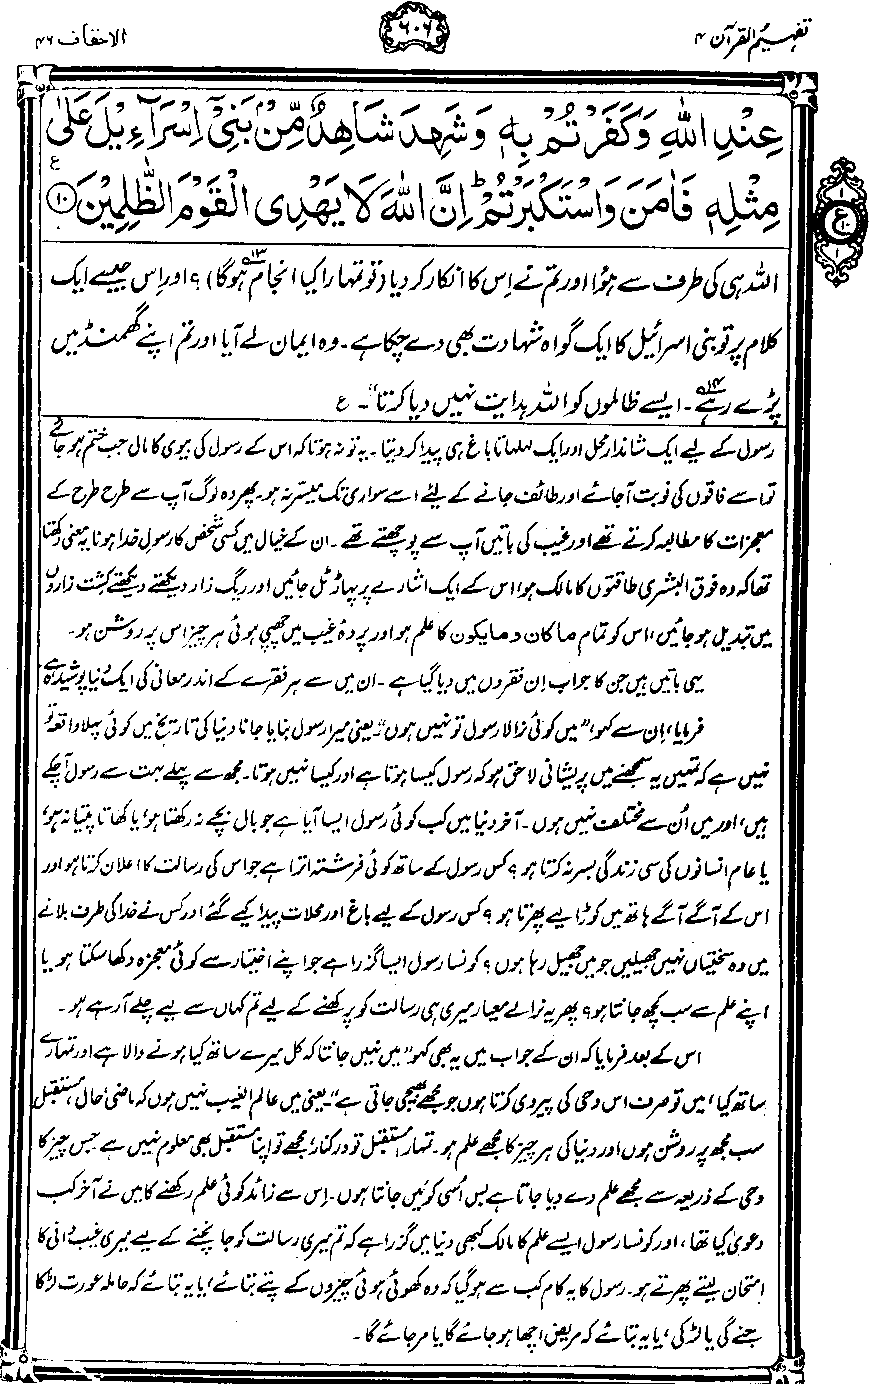 تفہیم القرآن ۴
۶۰۶
الاحقاف ۴۶
عِنْدِ اللّٰهِ وَكَفَرْتُمْ بِهٖ وَشَهِدَ شَاهِدٌ مِّنْۢ بَنِیْۤ اِسْرَآءِیْلَ عَلٰی
مِثْلِهٖ فَاٰمَنَ وَاسْتَكْبَرْتُمْ ؕ اِنَّ اللّٰهَ لَا یَهْدِی الْقَوْمَ الظّٰلِمِیْنَ ۝۱۰ ع
ع
۱۰
۱
اللہ ہی کی طرف سے ہوا اور تم نے اِس کا انکار کر دیا (تو تمہارا کیا انجام ہوگا)۱۳؟ اور اِس جیسے ایک
کلام پر تو بنی اسرائیل کا ایک گواہ شہادت بھی دے چکا ہے۔ وہ ایمان لے آیا اور تم اپنے گھمنڈ میں
پڑے رہے۱۴۔ ایسے ظالموں کو اللہ ہدایت نہیں دیا کرتا“۔ ع
رسول کے لیے ایک شاندار محل اور ایک لہلہاتا باغ ہی پیدا کر دیتا۔ یہ تو نہ ہوتا کہ اس کے رسول کی بیوی کا مال جب ختم ہو جائے
تو اسے فاقوں کی نوبت آجائے اور طائف جانے کے لیئے اسے سواری تک میسر نہ ہو۔ پھر وہ لوگ آپ سے طرح طرح کے
معجزات کا مطالبہ کرتے تھے اور غیب کی باتیں آپ سے پوچھتے تھے۔ ان کے خیال میں کسی شخص کا رسولِ خدا ہونا یہ معنی رکھتا
تھا کہ وہ فوق البشری طاقتوں کا مالک ہو، اس کے ایک اشارے پر پہاڑ ٹل جائیں اور ریگ زار دیکھتے دیکھتے کشت زاروں
میں تبدیل ہو جائیں، اس کو تمام ما کان و ما یکون کا علم ہو اور پردۂ غیب میں چھپی ہوئی ہر چیز اس پر روشن ہو۔
یہی باتیں ہیں جن کا جواب اِن فقروں میں دیا گیا ہے۔ ان میں سے ہر فقرے کے اندر معانی کی ایک دُنیا پوشیدہ ہے
فرمایا، اِن سے کہو، ”میں کوئی نرالا رسول تو نہیں ہوں“۔ یعنی میرا رسول بنایا جانا دنیا کی تاریخ میں کوئی پہلا واقعہ تو
نہیں ہے کہ تمہیں یہ سمجھنے میں پریشانی لاحق ہو کہ رسول کیسا ہوتا ہے اور کیسا نہیں ہوتا۔ مجھ سے پہلے بہت سے رسول آ چکے
ہیں، اور میں اُن سے مختلف نہیں ہوں۔ آخر دنیا میں کب کوئی رسول ایسا آیا ہے جو بال بچے نہ رکھتا ہو، یا کھاتا پیتا نہ ہو،
یا عام انسانوں کی سی زندگی بسر نہ کرتا ہو؟ کس رسول کے ساتھ کوئی فرشتہ اترا ہے جو اس کی رسالت کا اعلان کرتا ہو اور
اس کے آگے آگے ہاتھ میں کوڑا لیے پھرتا ہو؟ کس رسول کے لیے باغ اور محلات پیدا کیے گئے اور کس نے خدا کی طرف بلانے
میں وہ سختیاں نہیں جھیلیں جو میں جھیل رہا ہوں؟ کونسا رسول ایسا گزرا ہے جو اپنے اختیار سے کوئی معجزہ دکھا سکتا ہو یا
اپنے علم سے سب کچھ جانتا ہو؟ پھر یہ نرالے معیار میری ہی رسالت کو پرکھنے کے لیے تم کہاں سے لیے چلے آ رہے ہو۔
اس کے بعد فرمایا کہ ان کے جواب میں یہ بھی کہو ”میں نہیں جانتا کہ کل میرے ساتھ کیا ہونے والا ہے اور تمہارے
ساتھ کیا، میں تو صرف اس وحی کی پیروی کرتا ہوں جو مجھے بھیجی جاتی ہے“۔ یعنی میں عالم الغیب نہیں ہوں کہ ماضی، حال، مستقبل
سب مجھ پر روشن ہوں اور دنیا کی ہر چیز کا مجھے علم ہو۔ تمہارا مستقبل تو درکنار، مجھے تو اپنا مستقبل بھی معلوم نہیں ہے جس چیز کا
وحی کے ذریعہ سے مجھے علم دے دیا جاتا ہے بس اُسی کو میں جانتا ہوں۔ اِس سے زائد کوئی علم رکھنے کا میں نے آخر کب
دعویٰ کیا تھا، اور کونسا رسول ایسے علم کا مالک کبھی دنیا میں گزرا ہے کہ تم میری رسالت کو جانچنے کے لیے میری غیب دانی کا
امتحان لیتے پھرتے ہو۔ رسول کا یہ کام کب سے ہو گیا کہ وہ کھوئی ہوئی چیزوں کے پتے بتائے، یا یہ بتائے کہ حاملہ عورت لڑکا
جنے گی یا لڑکی، یا یہ بتائے کہ مریض اچھا ہو جائے گا یا مر جائے گا۔